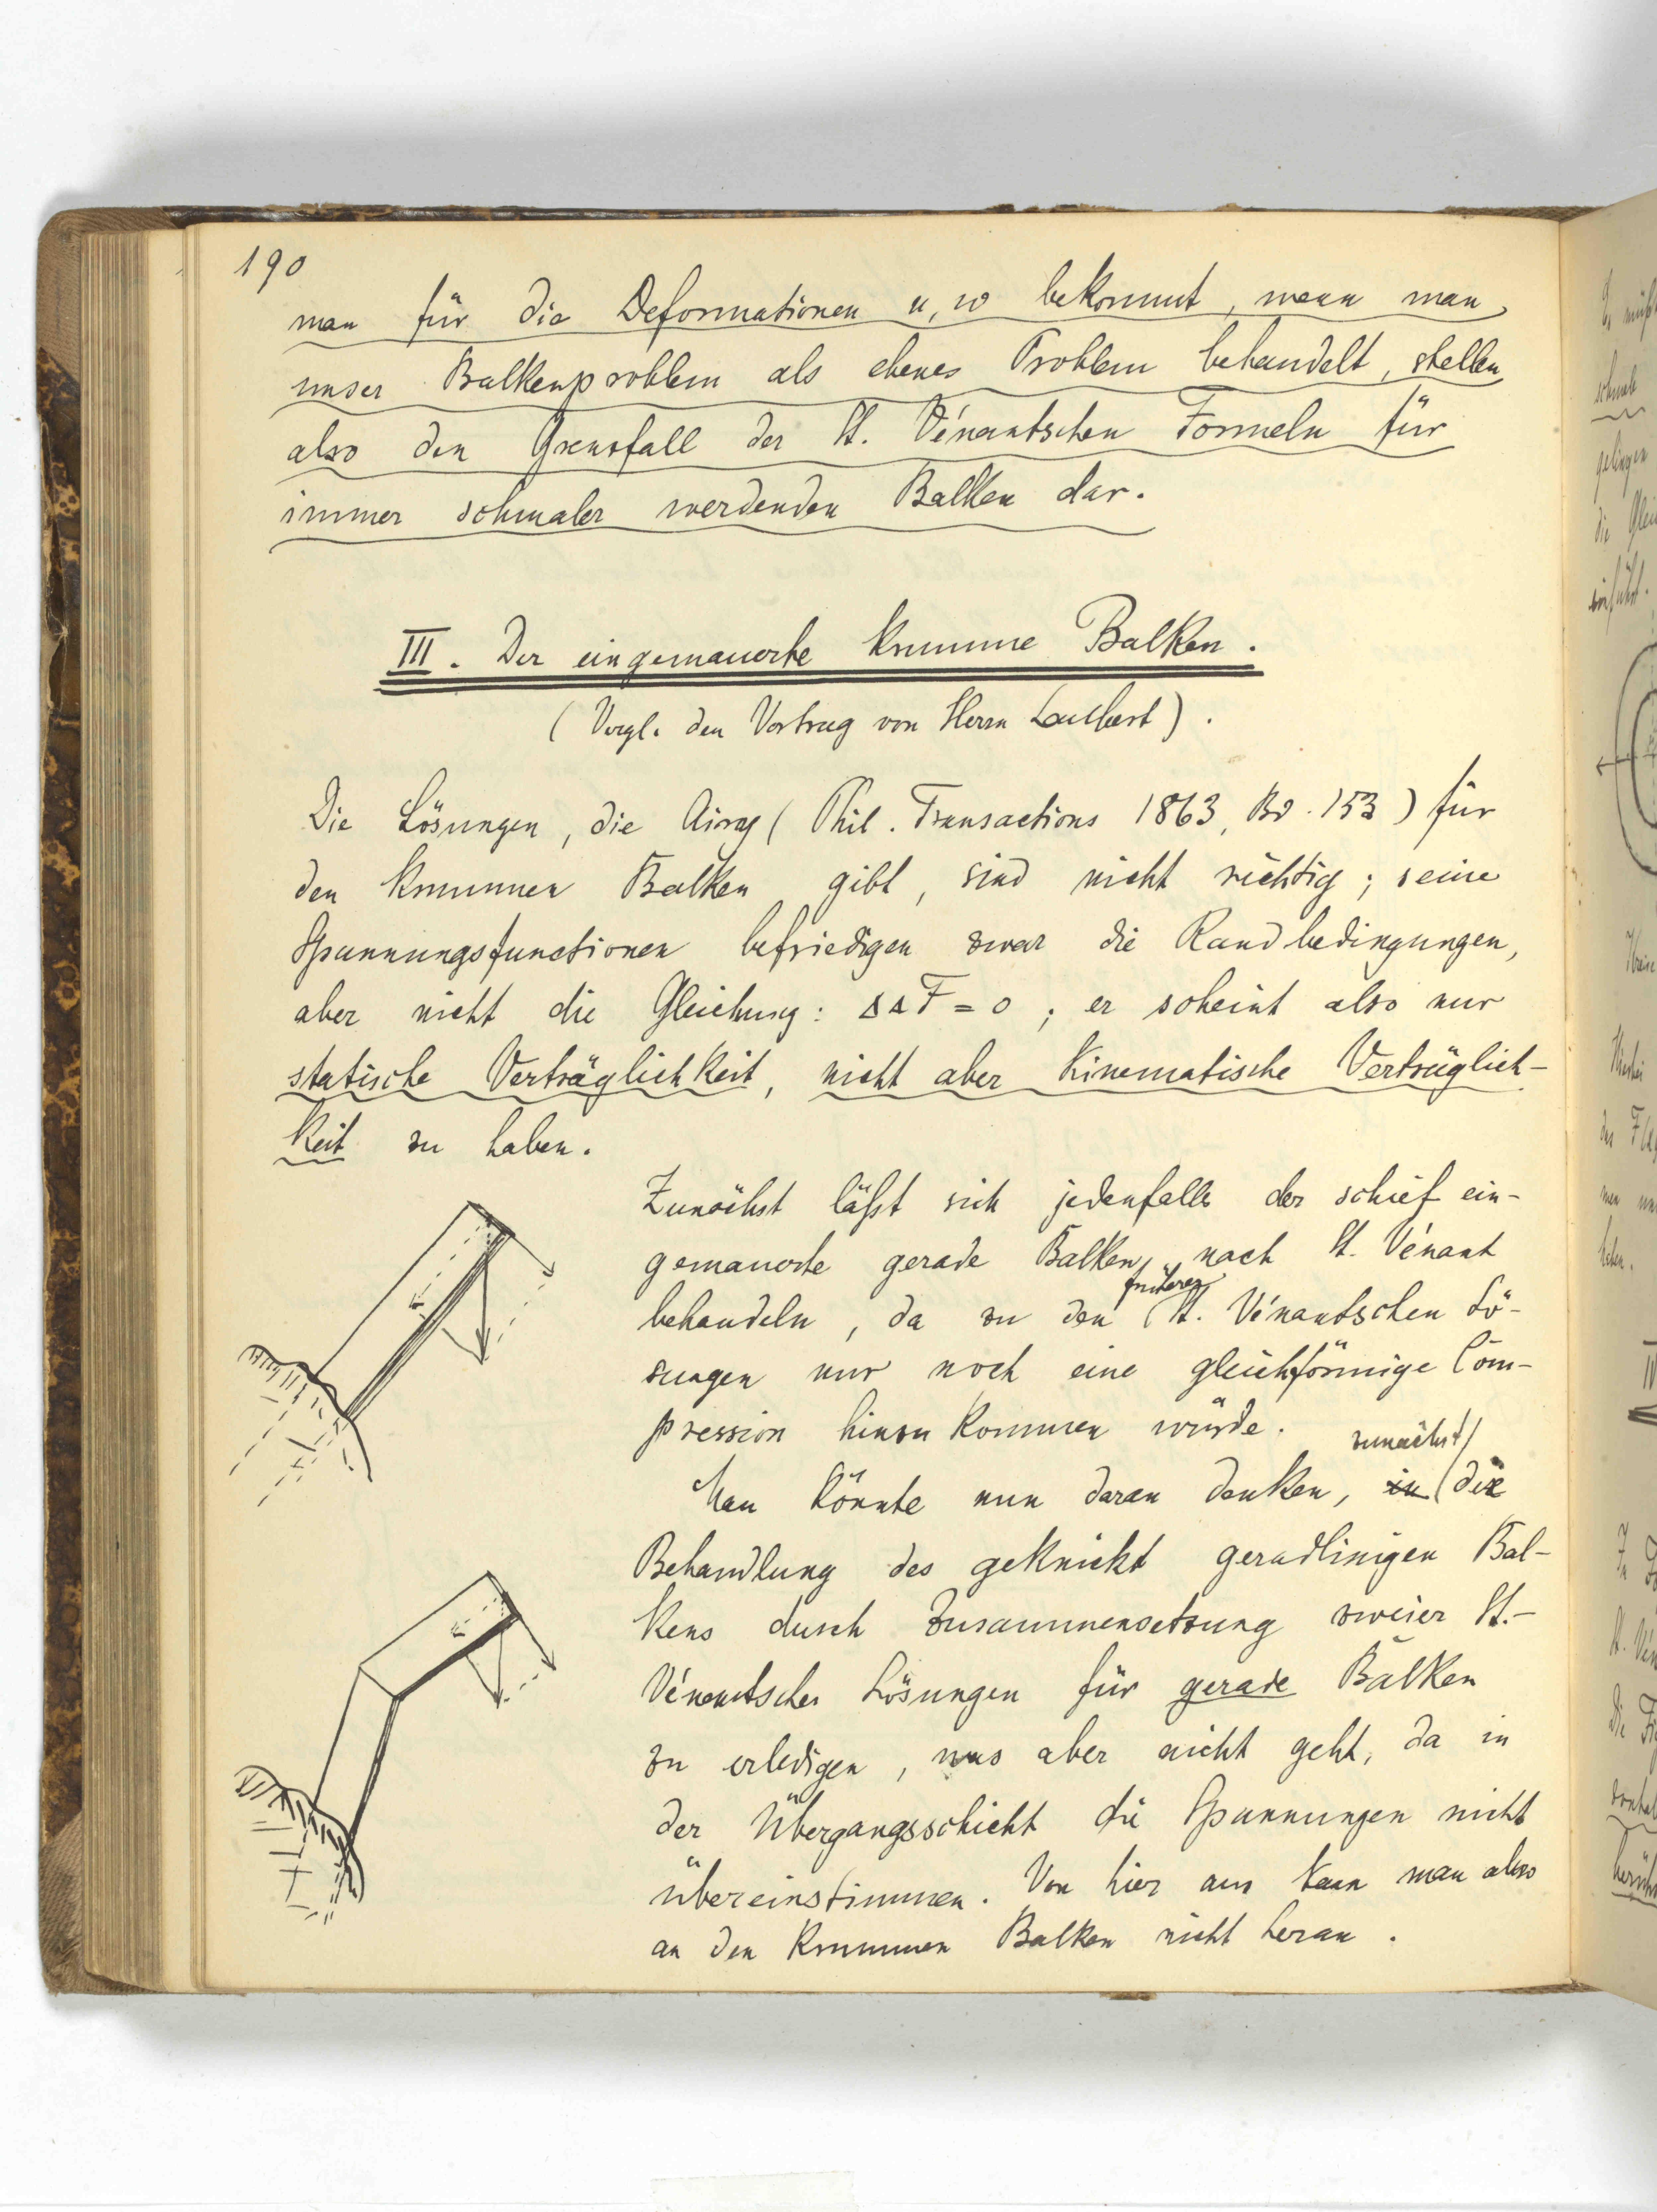 190
man für die Deformationen u, w bekommt, wenn man
unser Balkenproblem als ebenes Problem behandelt, stellen
also den Grenzfall der St. Vénantschen Formeln für
immer schmaler werdenden Balken dar.
III. Der eingemauerte krumme Balken.
(Vergl. den Vortrag von Herrn).
Die Lösungen, die Airy (Phil. Transactions 1863, Bd. 153) für
den krummen Balken gibt, sind nicht richtig; seine
Spannungsfunctionen befriedigen zwar die Randbedingungen,
aber nicht die Gleichung: ΔΔF = 0; er scheint also nur
statische Verträglichkeit, nicht aber kinematische Verträglich-
keit zu haben.
Zunächst läßt sich jedenfalls der schief ein-
gemauerte gerade Balken nach St. Vénant
behandeln, da zu den früheren St. Vénantschen Lö-
sungen nur noch eine gleichförmige Com-
pression hinzu kommen würde.
Man könnte nun daran denken, zunächst die
Behandlung des geknickt geradlinigen Bal-
kens durch Zusammensetzung zweier St.-
Vénantscher Lösungen für gerade Balken
zu erledigen, was aber nicht geht, da in
der Übergangsschicht die Spannungen nicht
übereinstimmen. Von hier aus kann man also
an den krummen Balken nicht heran.